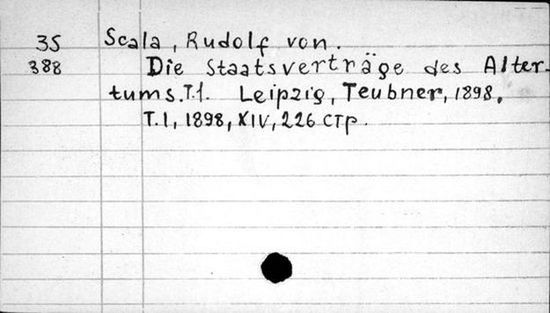 35 Scala, Rudolf von.
388 Die Staatsverträge des Alter-
tums.T.1. Leipzig, Teubner, 1898,
T.1, 1898, XIV, 226 стр.